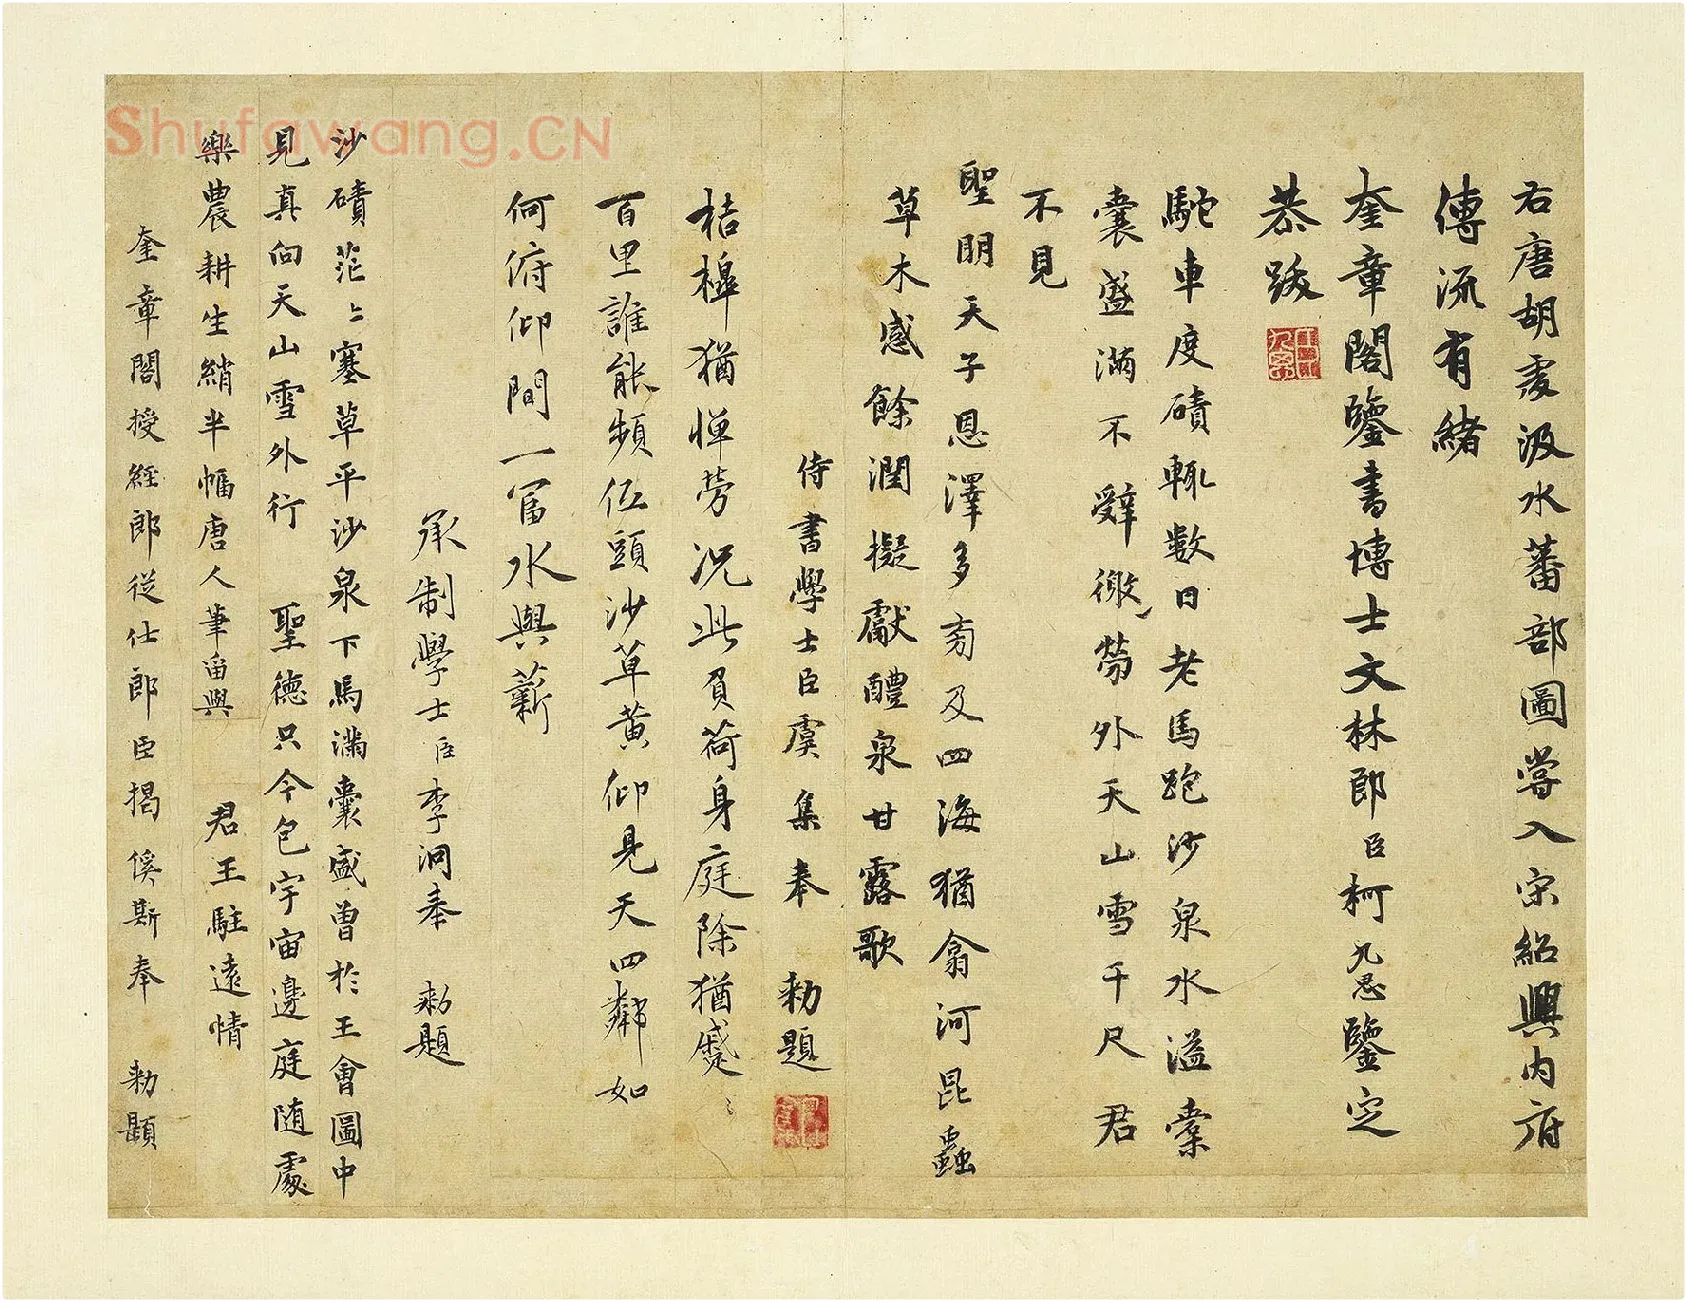 右唐胡虔汲水蕃部圖嘗入宋紹興內府
傳流有緒
奎章閣鑒書博士文林郎臣柯九思鑒定
恭跋
駝車度磧輒數日老馬跑沙泉水溢橐
囊盛滿不辭微勞外天山雪千尺君
不見
聖明天子恩澤多旁及四海猶翕河昆蟲
草木感餘潤擬獻醴泉甘露歌
侍書學士臣虞集奉 勅題
桔槹猶憚勞況此負荷身庭除猶蹙蹙
百里誰能頻低頭沙草黃仰見天四鄰如
何俯仰間一富水與薪
承制學士臣李泂奉 勅題
沙磧茫茫塞草平沙泉下馬滿囊盛曾於王會圖中
見真向天山雪外行 聖德只今包宇宙邊庭隨處
樂農耕生綃半幅唐人筆留與 君王駐遠情
奎章閣授經郎從仕郎臣揭傒斯奉 勅題
Shufawang.CN